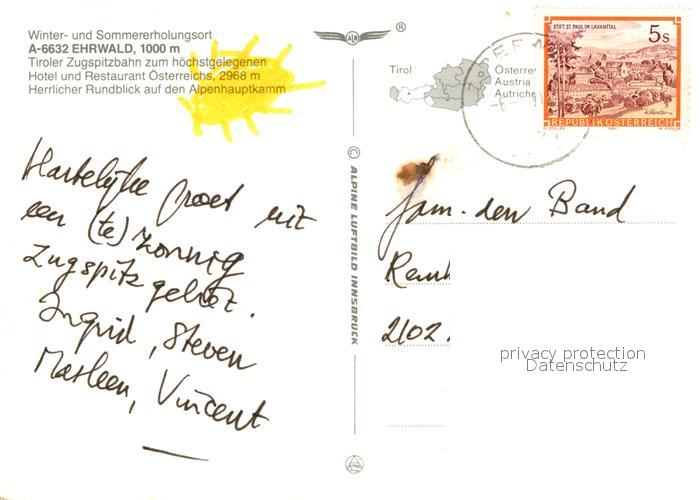 Winter- und Sommererholungsort
A-6632 EHRWALD, 1000 m
Tiroler Zugspitzbahn zum höchstgelegenen
Hotel und Restaurant Österreichs, 2968 m
Herrlicher Rundblick auf den Alpenhauptkamm
Hartelijke groet uit
een (te) zonnig
Zugspitz gebied.
Ingrid, Steven
Marleen, Vincent
®
© ALPINE LUFTBILD INNSBRUCK
Tirol
Österre
Austria
Autriche
STIFT ST. PAUL IM LAVANTTAL
5s
REPUBLIK ÖSTERREICH
Fam. den Band
2102
privacy protection
Datenschutz